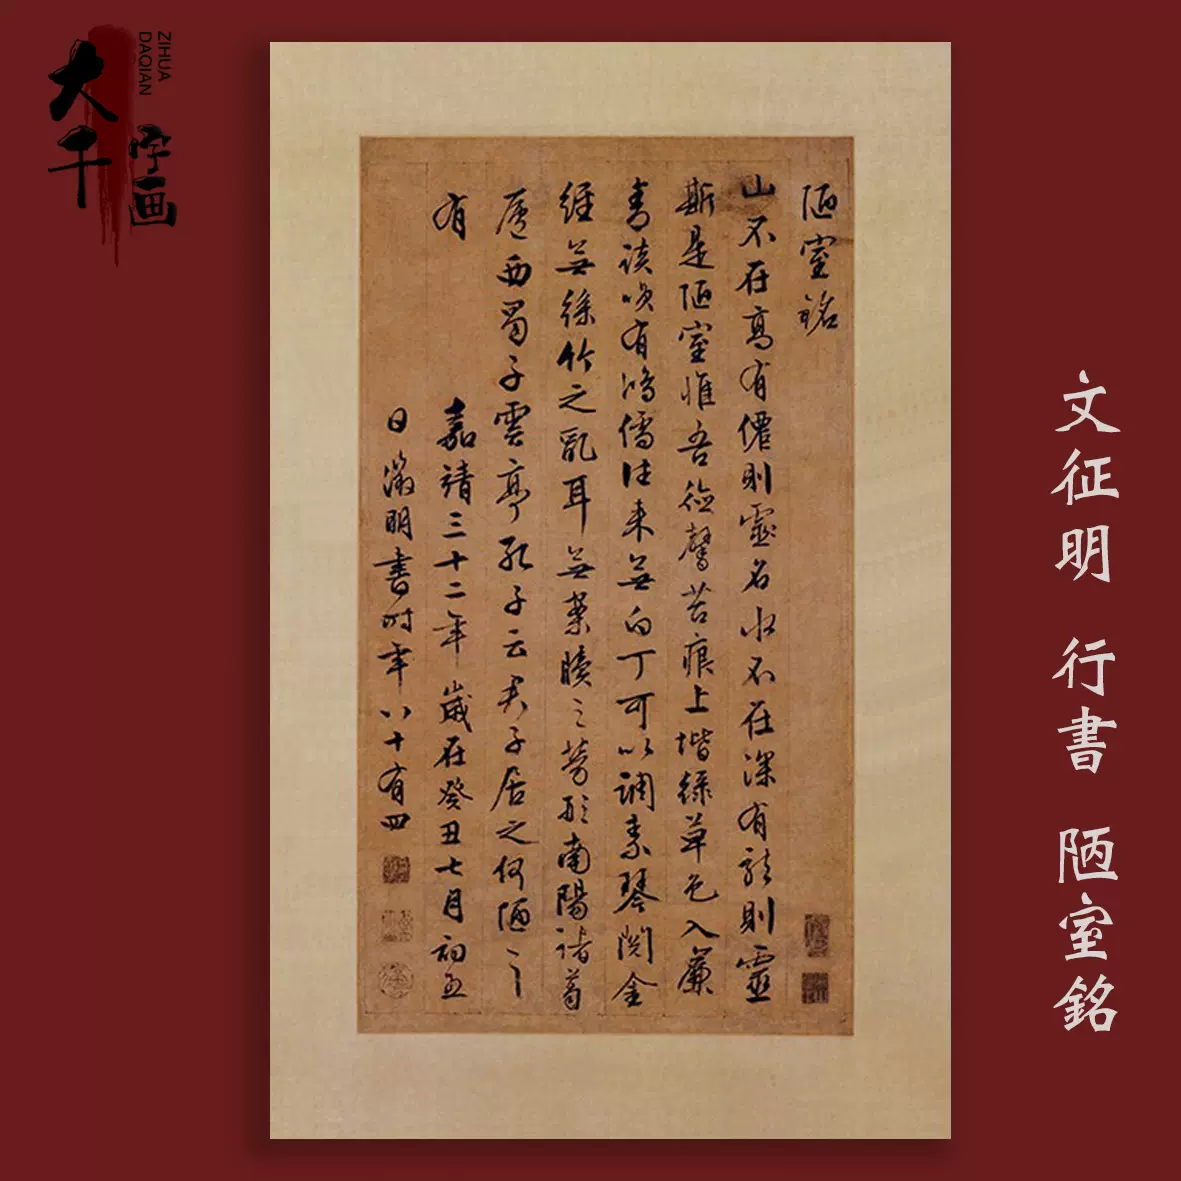 大千
字画
ZIHUA
DAQIAN
文征明 行書 陋室銘
陋室銘
山不在高有僊則靈名水不在深有龍則靈
斯是陋室惟吾德馨苔痕上堦綠草色入簾
青談咲有鴻儒往来無白丁可以調素琴閱金
經無絲竹之亂耳無案牘之勞形南陽諸葛
廬西蜀子雲亭孔子云君子居之何陋之
有
嘉靖三十二年歲在癸丑七月初五
日徵明書時年八十有四